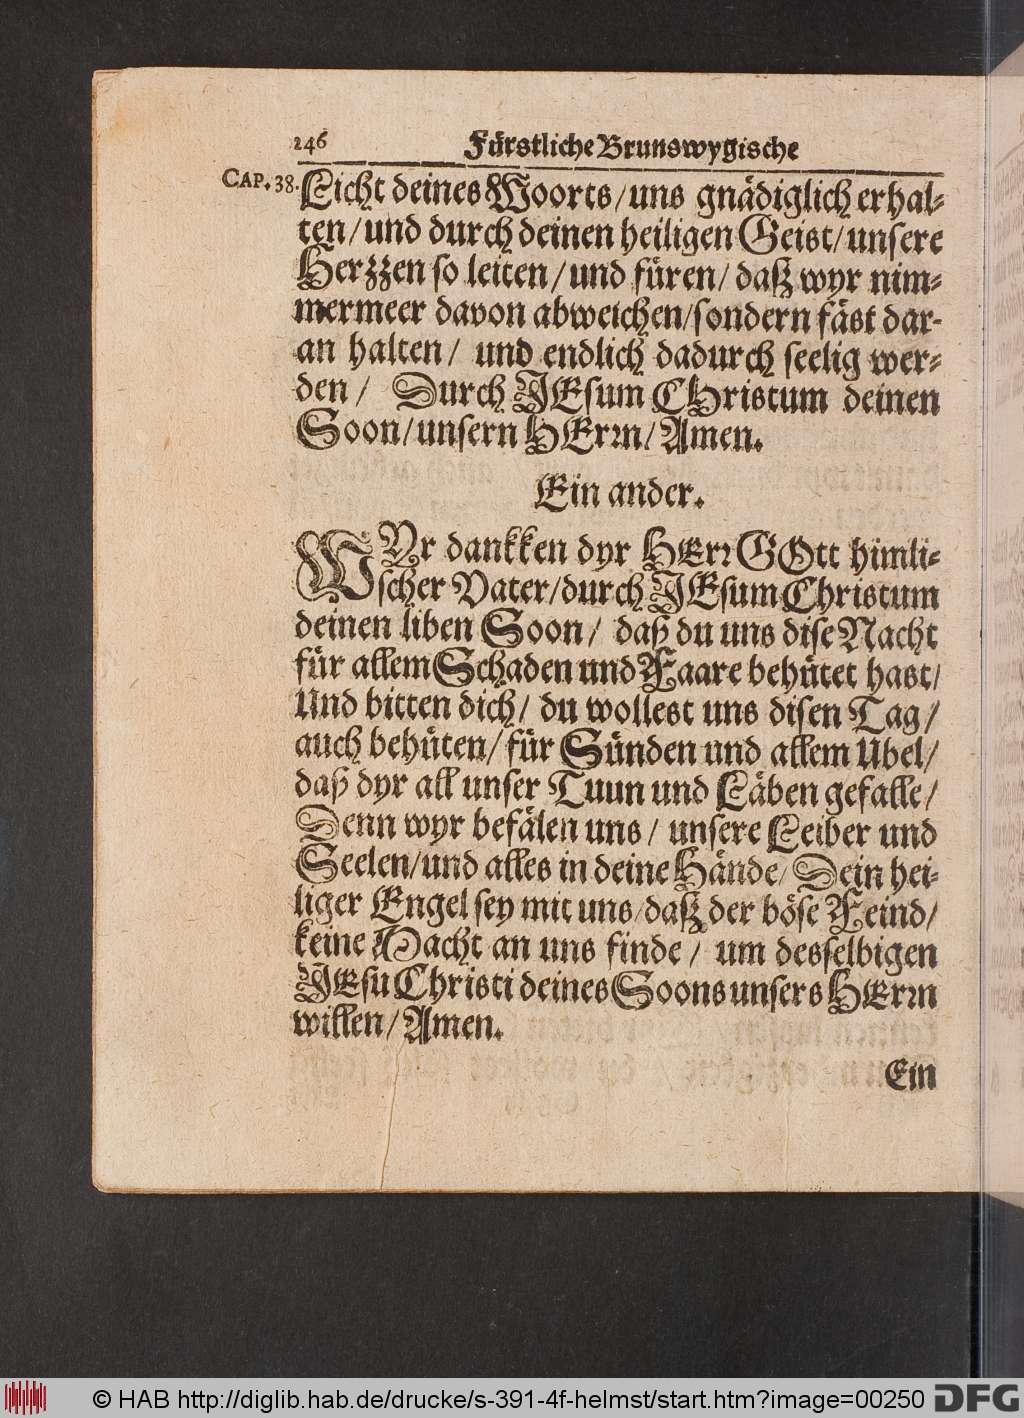 246 Fürstliche Brunswygische
CAP. 38. Licht deines Woorts / uns gnädiglich erhal-
ten / und durch deinen heiligen Geist / unsere
Herzzen so leiten / und füren / daß wyr nim-
mermeer davon abweichen / sondern fäst dar-
an halten / und endlich dadurch seelig wer-
den / Durch JEsum CHristum deinen
Soon / unsern HErrn / Amen.
Ein ander.
WYr dankken dyr HErr GOtt himli-
scher Vater / durch JEsum Christum
deinen liben Soon / daß du uns dise Nacht
für allem Schaden und Faare behütet hast /
Und bitten dich / du wollest uns disen Tag /
auch behüten / für Sünden und allem Ubel /
daß dyr all unser Tuun und Läben gefalle /
Denn wyr befälen uns / unsere Leiber und
Seelen / und alles in deine Hände / Dein hei-
liger Engel sey mit uns / daß der böse Feind /
keine Macht an uns finde / um desselbigen
JEsu Christi deines Soons unsers HErrn
willen / Amen.
Ein
© HAB http://diglib.hab.de/drucke/s-391-4f-helmst/start.htm?image=00250 DFG